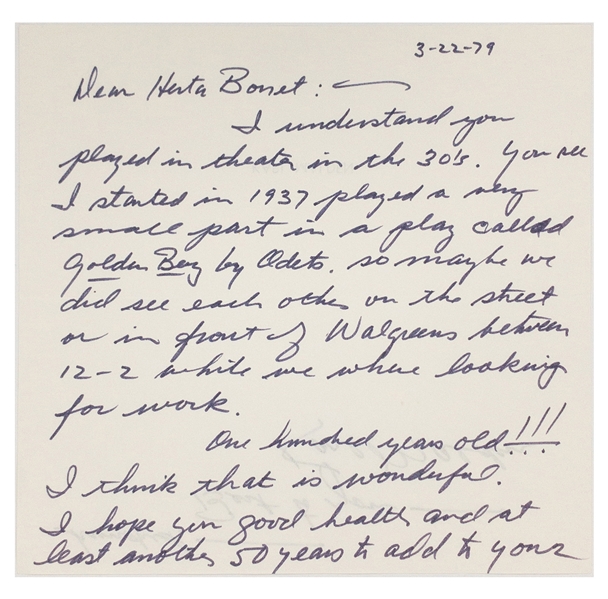 3-22-79
Dear Herta Bonet:
I understand you
played in theater in the 30's. You see
I started in 1937 played a very
small part in a play called
Golden Boy by Odets. so maybe we
did see each other on the street
or in front of Walgreens between
12-2 while we where looking
for work.
One hundred years old!!!
I think that is wonderful.
I hope you good health and at
least another 50 years to add to your